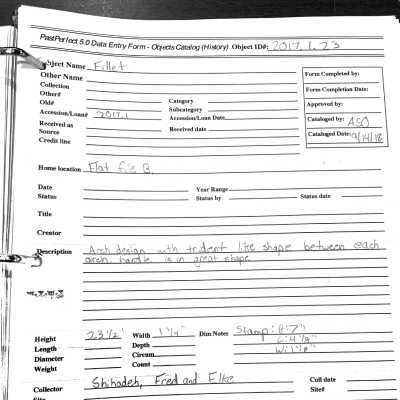 PastPerfect 5.0 Data Entry Form - Objects Catalog (History) Object ID#: 2017.1.23
Object Name Fillet
Other Name
Collection
Other#
Old# Category
Subcategory
Accession/Loan# 2017.1 Accession/Loan Date
Received as
Source Received date
Credit line
Form Completed by:
Form Completion Date:
Approved by:
Cataloged by: ASO
Cataloged Date: 9/14/18
Home location Flat file B
Date Year Range
Status Status by Status date
Title
Creator
Description Arch design with trident like shape between each
arch. handle is in great shape
Height 23 1/2" Width 1 1/4" Dim Notes Stamp: H:7"
Length Depth L:4 1/8"
Diameter Circum W:1 1/8"
Weight Count
Collector Shihadeh, Fred and Elke Coll date
Site#